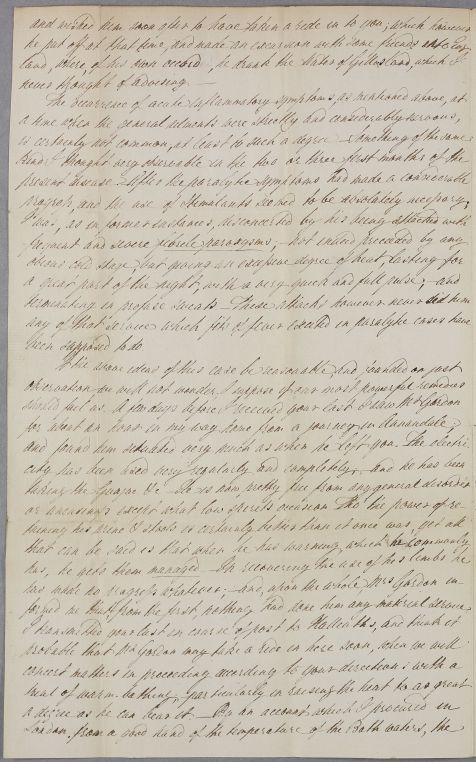 and wished him soon after to have taken a ride in to town; which however
he put off at that time, and made an excursion with some friends
land, where, of his own accord, he drank the Water of Gillsland, which I
never thought of advising. —
The occurrence of acute Inflammatory symptoms, as mentioned above, at
a time when the general ailments were strictly and considerably nervous,
is certainly not common, at least to such a degree. Something of the same
kind I thought very observable in the two or three first months of the
present disease. After the paralytic symptoms had made a considerable
progress, and the use of stimulants seemed to be absolutely necessary,
I was, as in former instances, disconcerted by his being affected with
frequent and severe febrile paroxysms; not indeed preceded by any
obvious cold stage, but giving an excessive degree of heat lasting for
a great part of the night, with a very quick and full pulse; and
terminating in profuse sweats — These attacks however never did him
any of that service which fits of fever excited in paralytic cases have
been supposed to do.
If the above ideas of this case be reasonable and founded on just
observation we will not wonder I suppose if our most powerful remedies
should fail us. A few days before I received your last I saw Mr Gordon
for about an hour in my way home from a journey in Annandale;
and found him situated very much as when he left you. The electri-
city has been used very regularly and completely, and he has been
taking the &c. He is now pretty free from any general disorder
or uneasiness except what low spirits occasion. Tho' the power of re-
taining his urine & stools is certainly better than it once was, yet all
that can be said is that when he has warning, which he commonly
has, he gets them managed — In recovering the use of his limbs he
has made no progress whatever; — and, upon the whole, Mrs Gordon in-
formed me that, from the first, nothing had done him any material service
I transmitted your last in course of post to Halleaths, and think it
probable that Mr Gordon may take a ride in here soon, when we will
concert matters in proceeding according to your directions with a
trial of warm-bathing; particularly in raising the heat to as great
a degree as he can bear it — By an account which I procured in
London, from a good hand of the temperature of the Bath waters, the